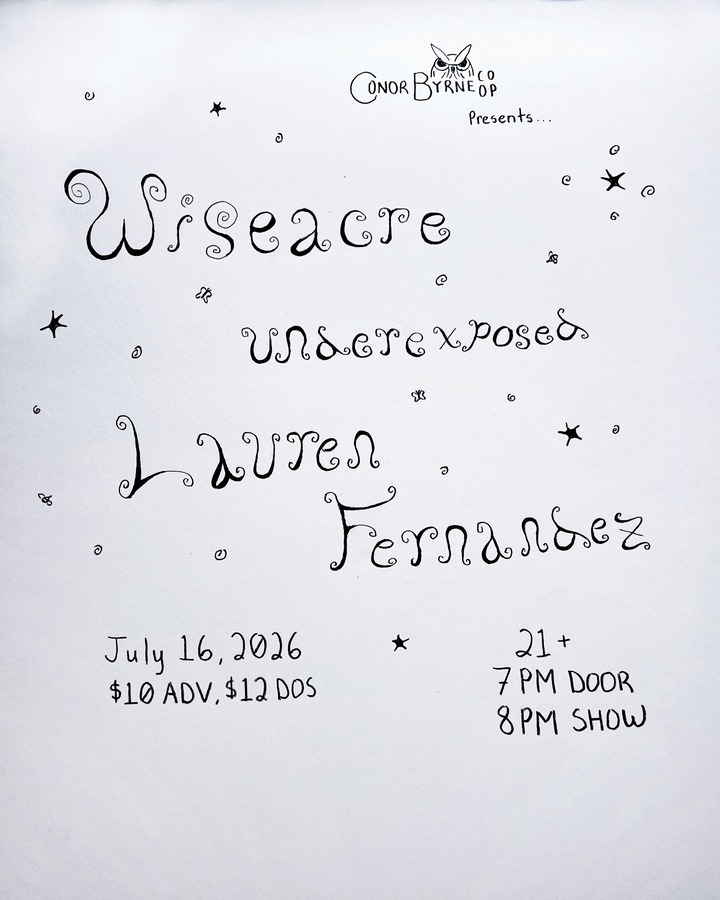 CONOR BYRNE CO OP
Presents...
Wiseacre
underexposed
Lauren
Fernandez
July 16, 2026
$10 ADV, $12 DOS
21+
7PM DOOR
8PM SHOW